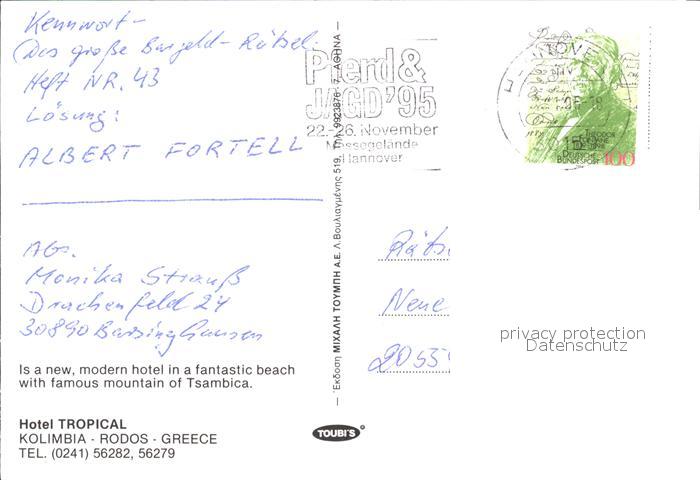 Kennwort-
Das große Bargeld-Rätsel
Heft NR. 43
Lösung:
ALBERT FORTELL
Abs.
Monika Strauß
Drachenfeld 24
30890 Barsinghausen
Is a new, modern hotel in a fantastic beach
with famous mountain of Tsambica.
Hotel TROPICAL
KOLIMBIA - RODOS - GREECE
TEL. (0241) 56282, 56279
Έκδοση ΜΙΧΑΛΗ ΤΟΥΜΠΗ Α.Ε. Λ. Βουλιαγμένης 519, Τηλ. 9923876 - 7 - ΑΘΗΝΑ
TOUBI'S
Pferd &
JAGD '95
22.-26. November
Messegelände
Hannover
THEODOR
FONTANE
DEUTSCHE
BUNDESPOST 100
Räts
Neue
2055
privacy protection
Datenschutz